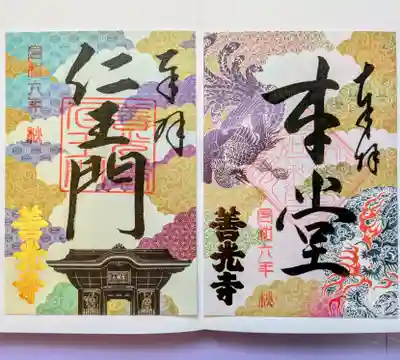 奉拝
本堂
令和六年 秋
善光寺
奉拝
仁王門
令和六年 秋
善光寺